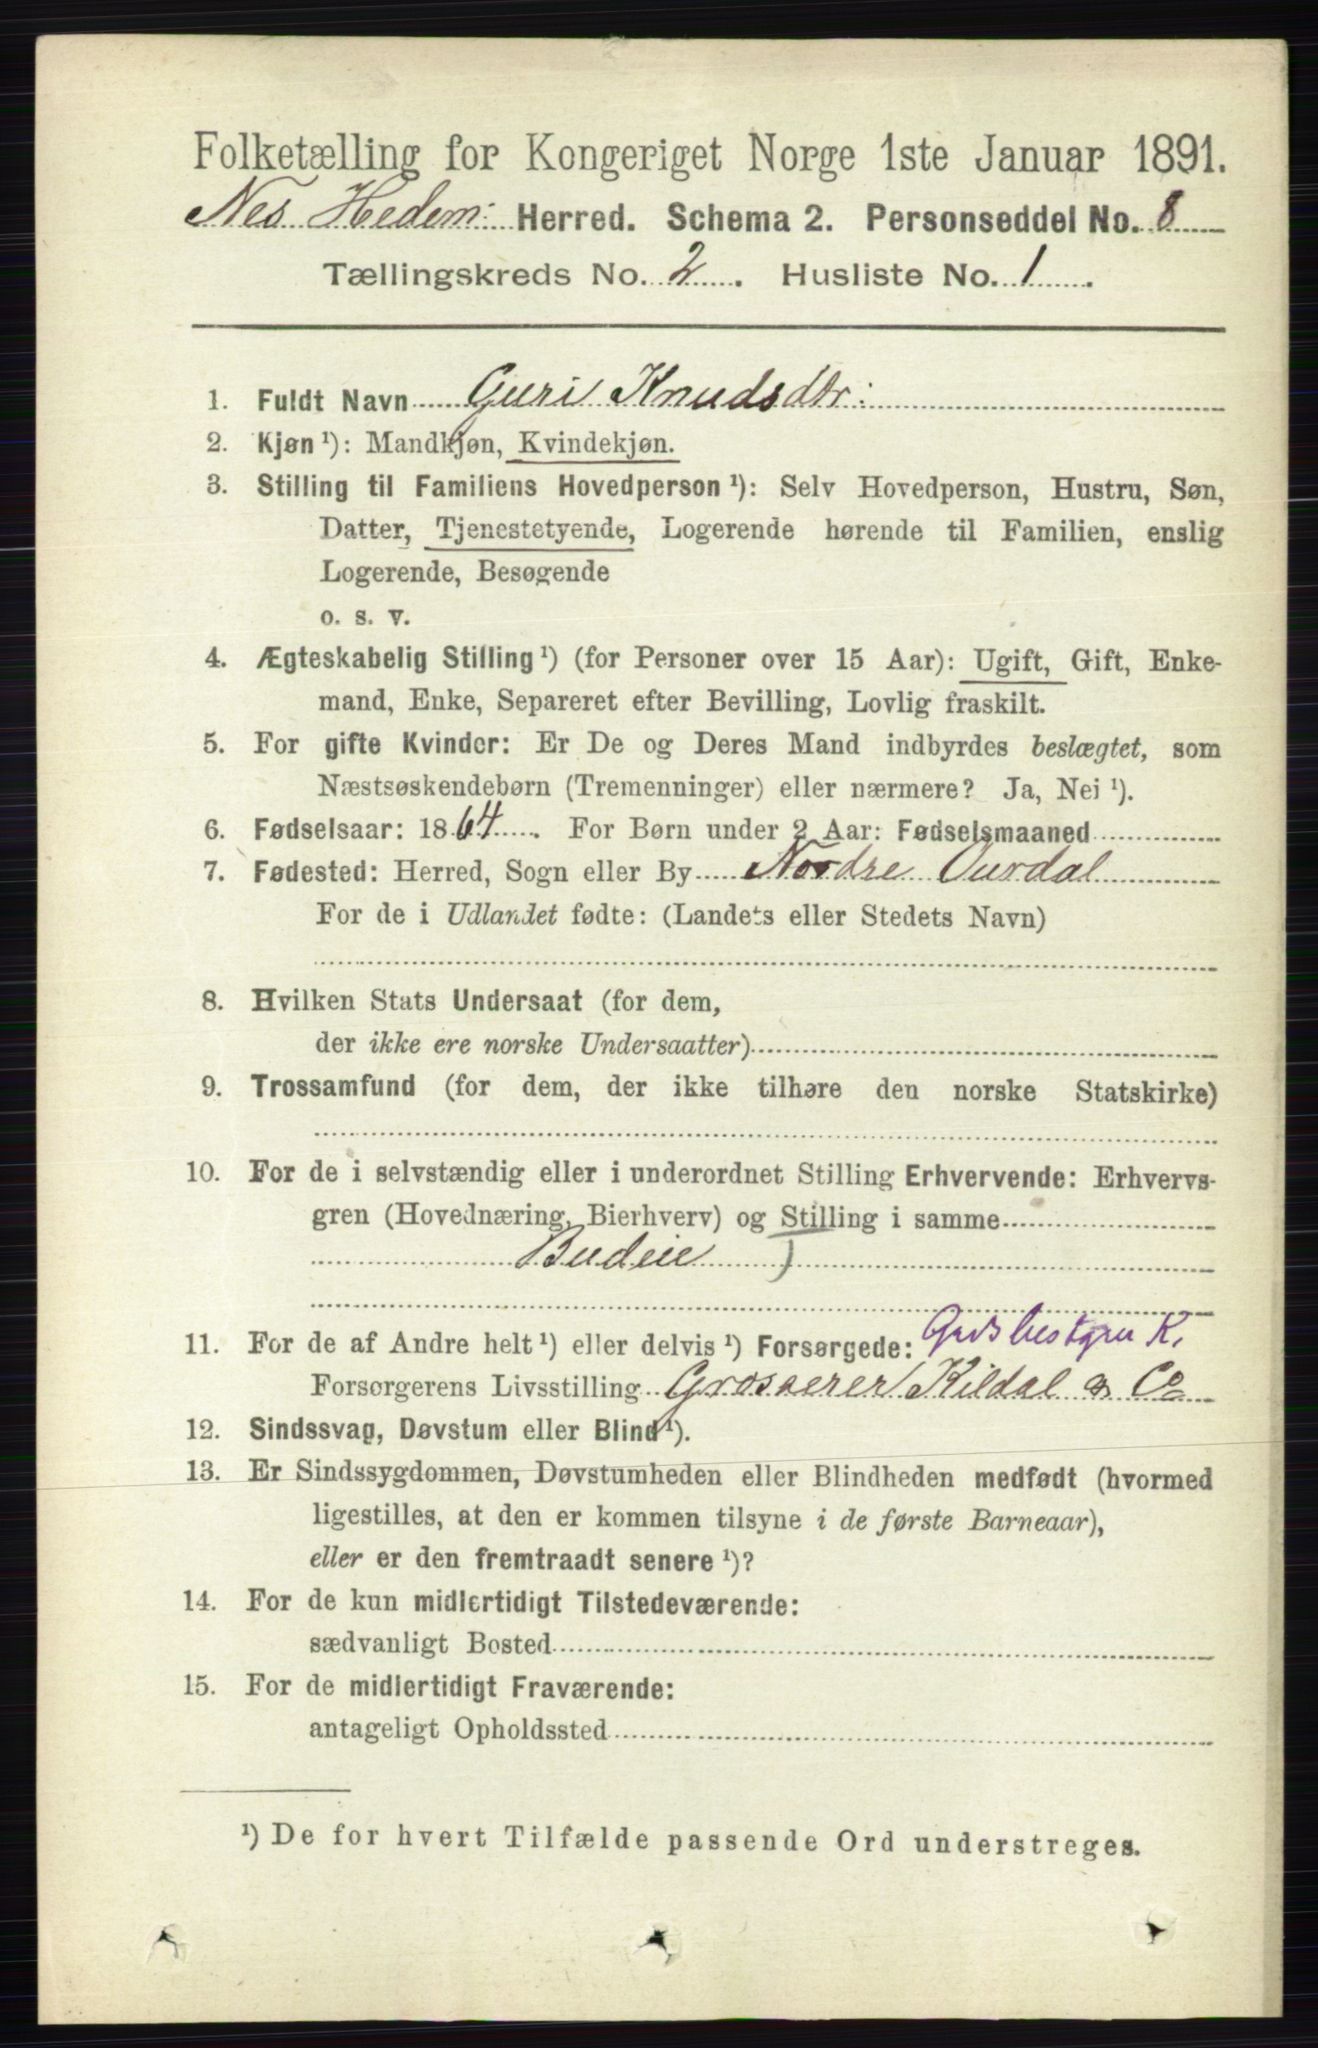 Folketælling for Kongeriget Norge 1ste Januar 1891.
Nes Hedem: Herred. Schema 2. Personseddel No. 8
Tællingskreds No. 2. Husliste No. 1.
1. Fuldt Navn Guri Knudsdtr:
2. Kjøn ¹): Mandkjøn, Kvindekjøn.
3. Stilling til Familiens Hovedperson ¹): Selv Hovedperson, Hustru, Søn,
Datter, Tjenestetyende, Logerende hørende til Familien, enslig
Logerende, Besøgende
o. s. v.
4. Ægteskabelig Stilling ¹) (for Personer over 15 Aar): Ugift, Gift, Enke-
mand, Enke, Separeret efter Bevilling, Lovlig fraskilt.
5. For gifte Kvinder: Er De og Deres Mand indbyrdes beslægtet, som
Næstsøskendebørn (Tremenninger) eller nærmere? Ja, Nei ¹).
6. Fødselsaar: 1864. For Børn under 2 Aar: Fødselsmaaned
7. Fødested: Herred, Sogn eller By Nordre Ourdal
For de i Udlandet fødte: (Landets eller Stedets Navn)
8. Hvilken Stats Undersaat (for dem,
der ikke ere norske Undersaatter)
9. Trossamfund (for dem, der ikke tilhøre den norske Statskirke)
10. For de i selvstændig eller i underordnet Stilling Erhvervende: Erhvervs-
gren (Hovednæring, Bierhverv) og Stilling i samme
Budeie )
11. For de af Andre helt ¹) eller delvis ¹) Forsørgede: K.
Forsørgerens Livsstilling Grosserer Kildal & Co
12. Sindssvag, Døvstum eller Blind ¹).
13. Er Sindssygdommen, Døvstumheden eller Blindheden medfødt (hvormed
ligestilles, at den er kommen tilsyne i de første Barneaar),
eller er den fremtraadt senere ¹)?
14. For de kun midlertidigt Tilstedeværende:
sædvanligt Bosted
15. For de midlertidigt Fraværende:
antageligt Opholdssted
¹) De for hvert Tilfælde passende Ord understreges.